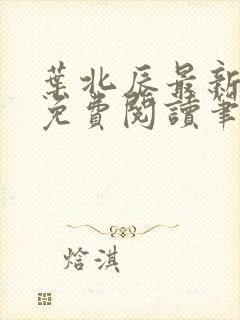 葉北辰最新
免費閱讀筆
焓淇